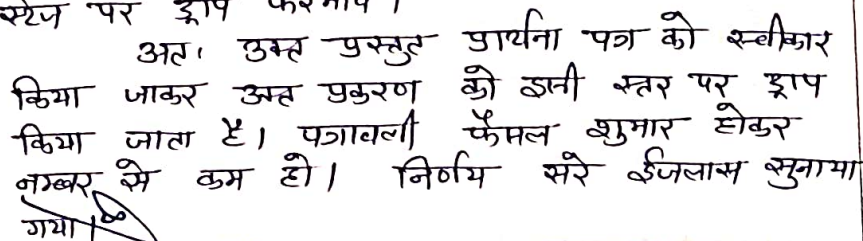 स्टेज पर ड्राप फरमावे।
अतः उक्त प्रस्तुत प्रार्थना पत्र को स्वीकार
किया जाकर उक्त प्रकरण को इसी स्तर पर ड्राप
किया जाता है। पत्रावली फैसल शुमार होकर
नम्बर से कम हो। निर्णय सरे ईजलास सुनाया
गया।